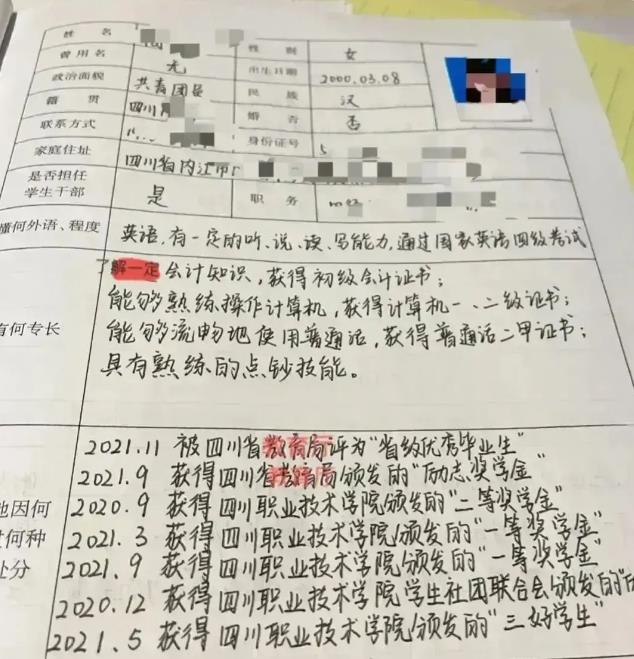 姓 名 性 别 女
曾用名 无 出生日期 2000.03.08
政治面貌 共青团员 民 族 汉
籍 贯 四川 婚 否 否
联系方式 身份证号 5
家庭住址 四川省内江市
是否担任
学生干部 是 职 务
懂何外语、程度 英语,有一定的听、说、读、写能力,通过国家英语四级考试
了解一定会计知识,获得初级会计证书;
能够熟练操作计算机,获得计算机一、二级证书;
有何专长 能够流畅地使用普通话,获得普通话二甲证书;
具有熟练的点钞技能。
2021.11 被四川省教育局评为"省级优秀毕业生"
2021.9 获得四川省教育局颁发的"励志奖学金"
因何 2020.9 获得四川职业技术学院颁发的"二等奖学金"
何种 2021.3 获得四川职业技术学院颁发的"一等奖学金"
处分 2021.9 获得四川职业技术学院颁发的"一等奖学金"
2020.12 获得四川职业技术学院学生社团联合会颁发的"
2021.5 获得四川职业技术学院颁发的"三好学生"